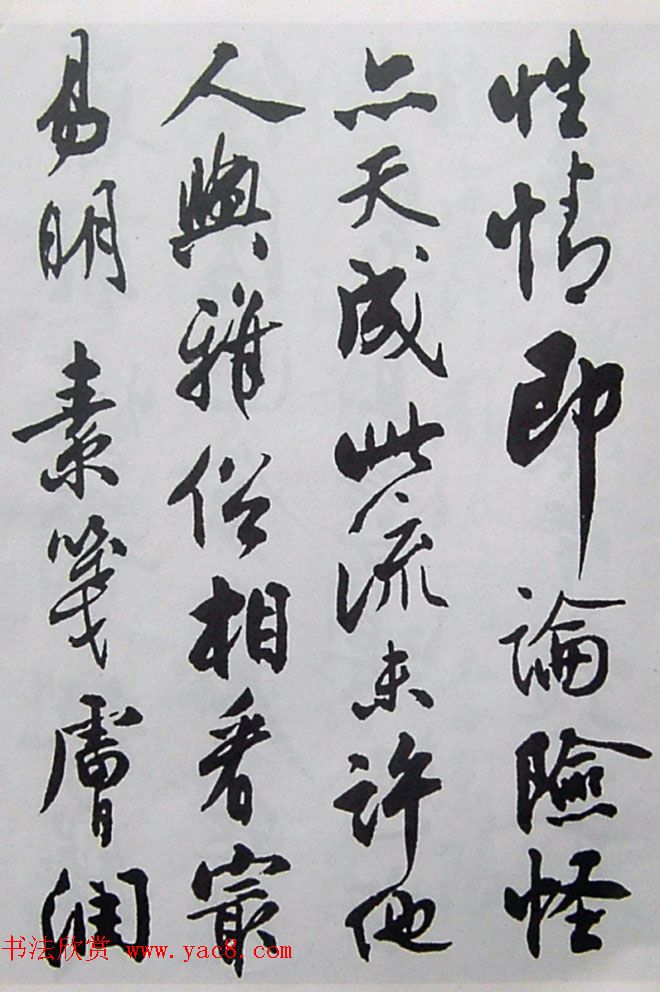 性情即論險怪
亦天成此流未許他
人與雅俗相看寂
易明素箋膚潤
书法欣赏 www.yac8.com